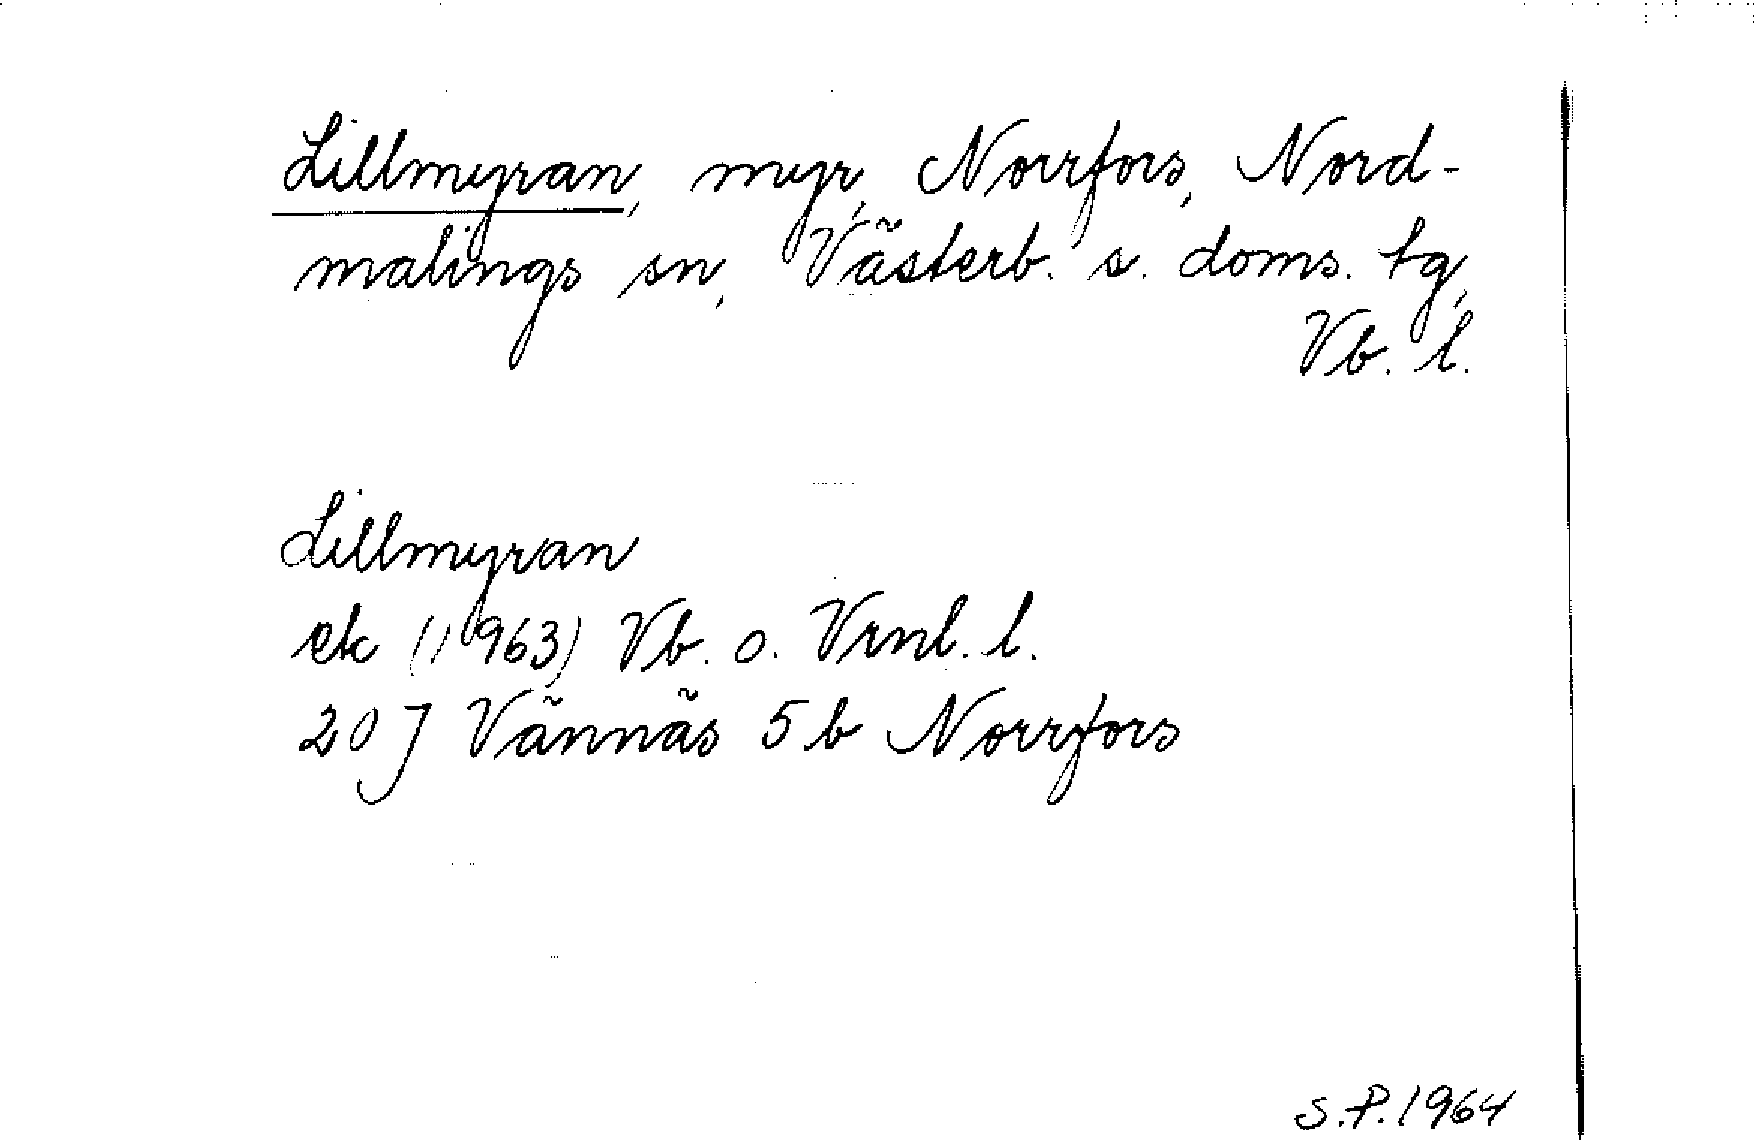 Lillmyran, myr, Norrfors, Nord-
malings sn, Västerb. s. doms. tg,
Vb. l.
Lillmyran
ek (1963) Vb. o. Vrnl. l.
20 J Vännäs 5 b Norrfors
S.P. 1964